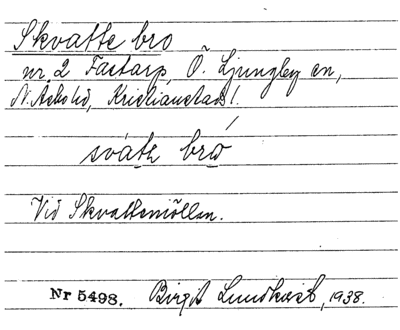 Skvatte bro
nr 2 Fastarp, Ö. Ljungby sn,
N. Åsbo hd, Kristianstads l.
svàtə bró
Vid Skvattemöllan.
Nr 5498. Birgit Lundkvist, 1938.